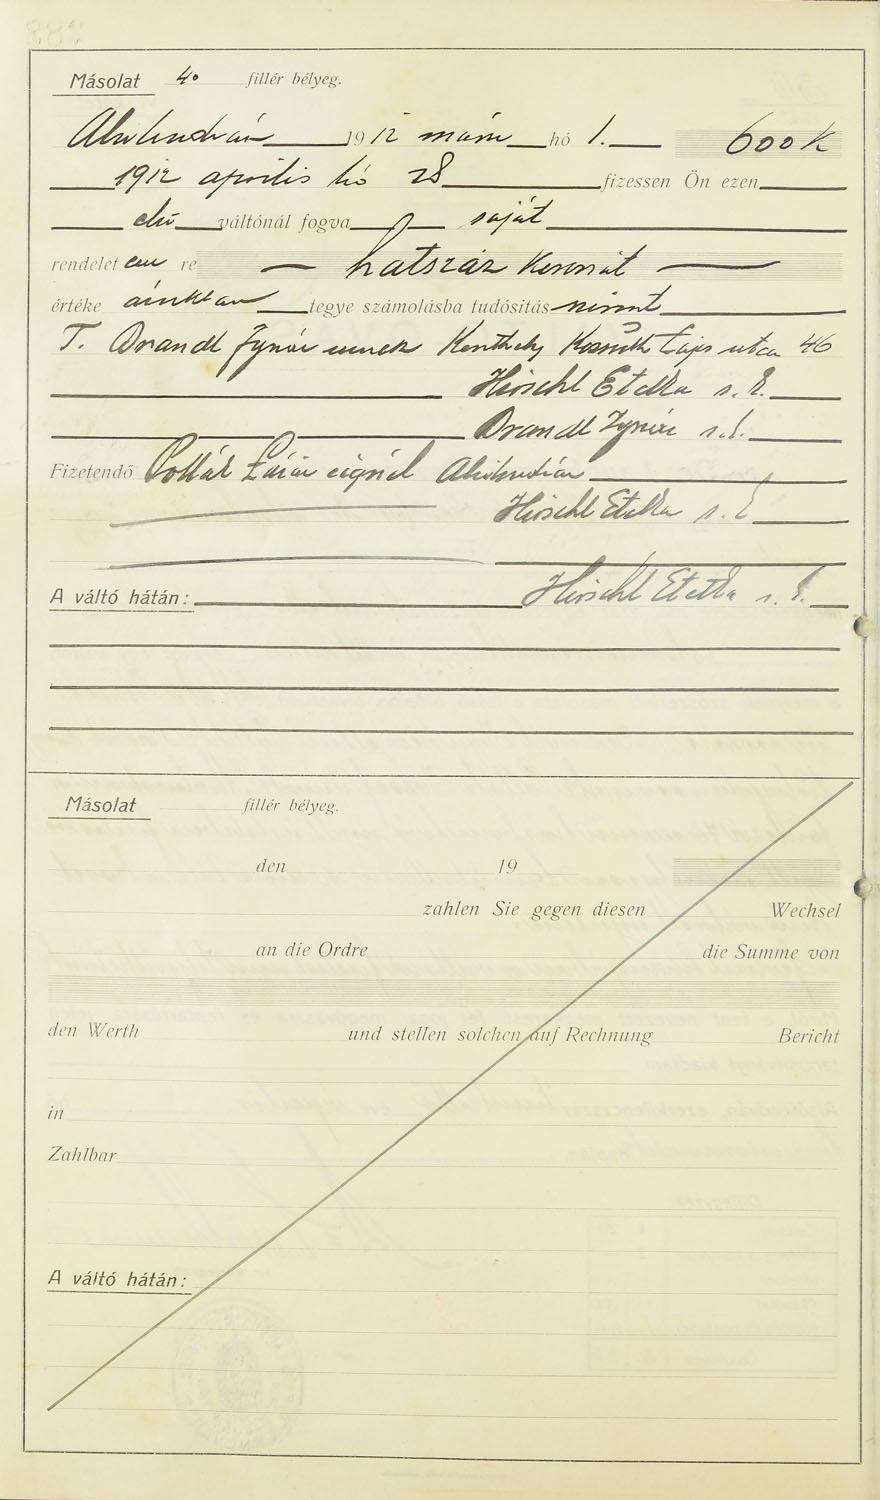 Másolat 40 fillér bélyeg.
Alsólendván 1912 hó 1. 600 K
1912 április hó 28 fizessen Ön ezen
váltónál fogva saját
rendelet re hatszáz Koronát
értéke tegye számolásba tudósitás
T. Brandl urnak Keszthely Kossuth Lajos utca 46
Hirschl Etelka s. k.
Brandl s. k.
Fizetendő Pollák cégnél Alsólendván
Hirschl Etelka s. k.
A váltó hátán: Hirschl Etelka s. k.
Másolat fillér bélyeg.
den 19
zahlen Sie gegen diesen Wechsel
an die Ordre die Summe von
den Werth und stellen solchen auf Rechnung Bericht
in
Zahlbar
A váltó hátán: